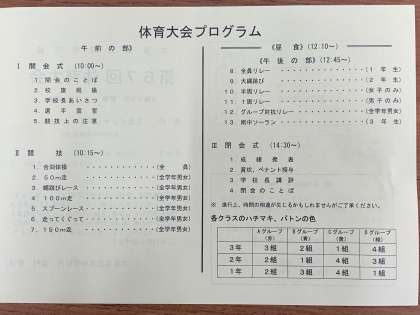 体育大会プログラム
《午前の部》
Ⅰ 開会式 (10:00～)
1. 開会のことば
2. 校旗掲揚
3. 学校長あいさつ
4. 選手宣誓
5. 競技上の注意
Ⅱ 競技 (10:15～)
1. 合同体操 ・・・・・・・・・・・・ (全員)
2. 50m走 ・・・・・・・・・・・・ (全学年男女)
3. 縄跳びレース ・・・・・・・・・・ (全学年男女)
4. 100m走 ・・・・・・・・・・・ (全学年男女)
5. スプーンレース ・・・・・・・・・ (全学年男女)
6. 走ってくぐって ・・・・・・・・・ (全学年男女)
7. 150m走 ・・・・・・・・・・・ (全学年男女)
《昼食》(12:10～)
《午後の部》(12:45～)
8. 全員リレー ・・・・・・・・・・ (1年生)
9. 大縄跳び ・・・・・・・・・・・ (2年生)
10. 半周リレー ・・・・・・・・・・ (女子のみ)
11. 1周リレー ・・・・・・・・・・ (男子のみ)
12. グループ対抗リレー ・・・・・・ (全学年男女)
13. 南中ソーラン ・・・・・・・・・ (3年生)
Ⅲ 閉会式 (14:30～)
1. 成績発表
2. 賞状、ペナント授与
3. 学校長講評
4. 閉会のことば
※ 進行上、時間の相違が生じるかもしれませんがご了承ください。
各クラスのハチマキ、バトンの色
Aグループ Bグループ Cグループ Dグループ
3年 3組 2組 1組 4組
2年 2組 1組 4組 3組
1年 2組 3組 1組 4組